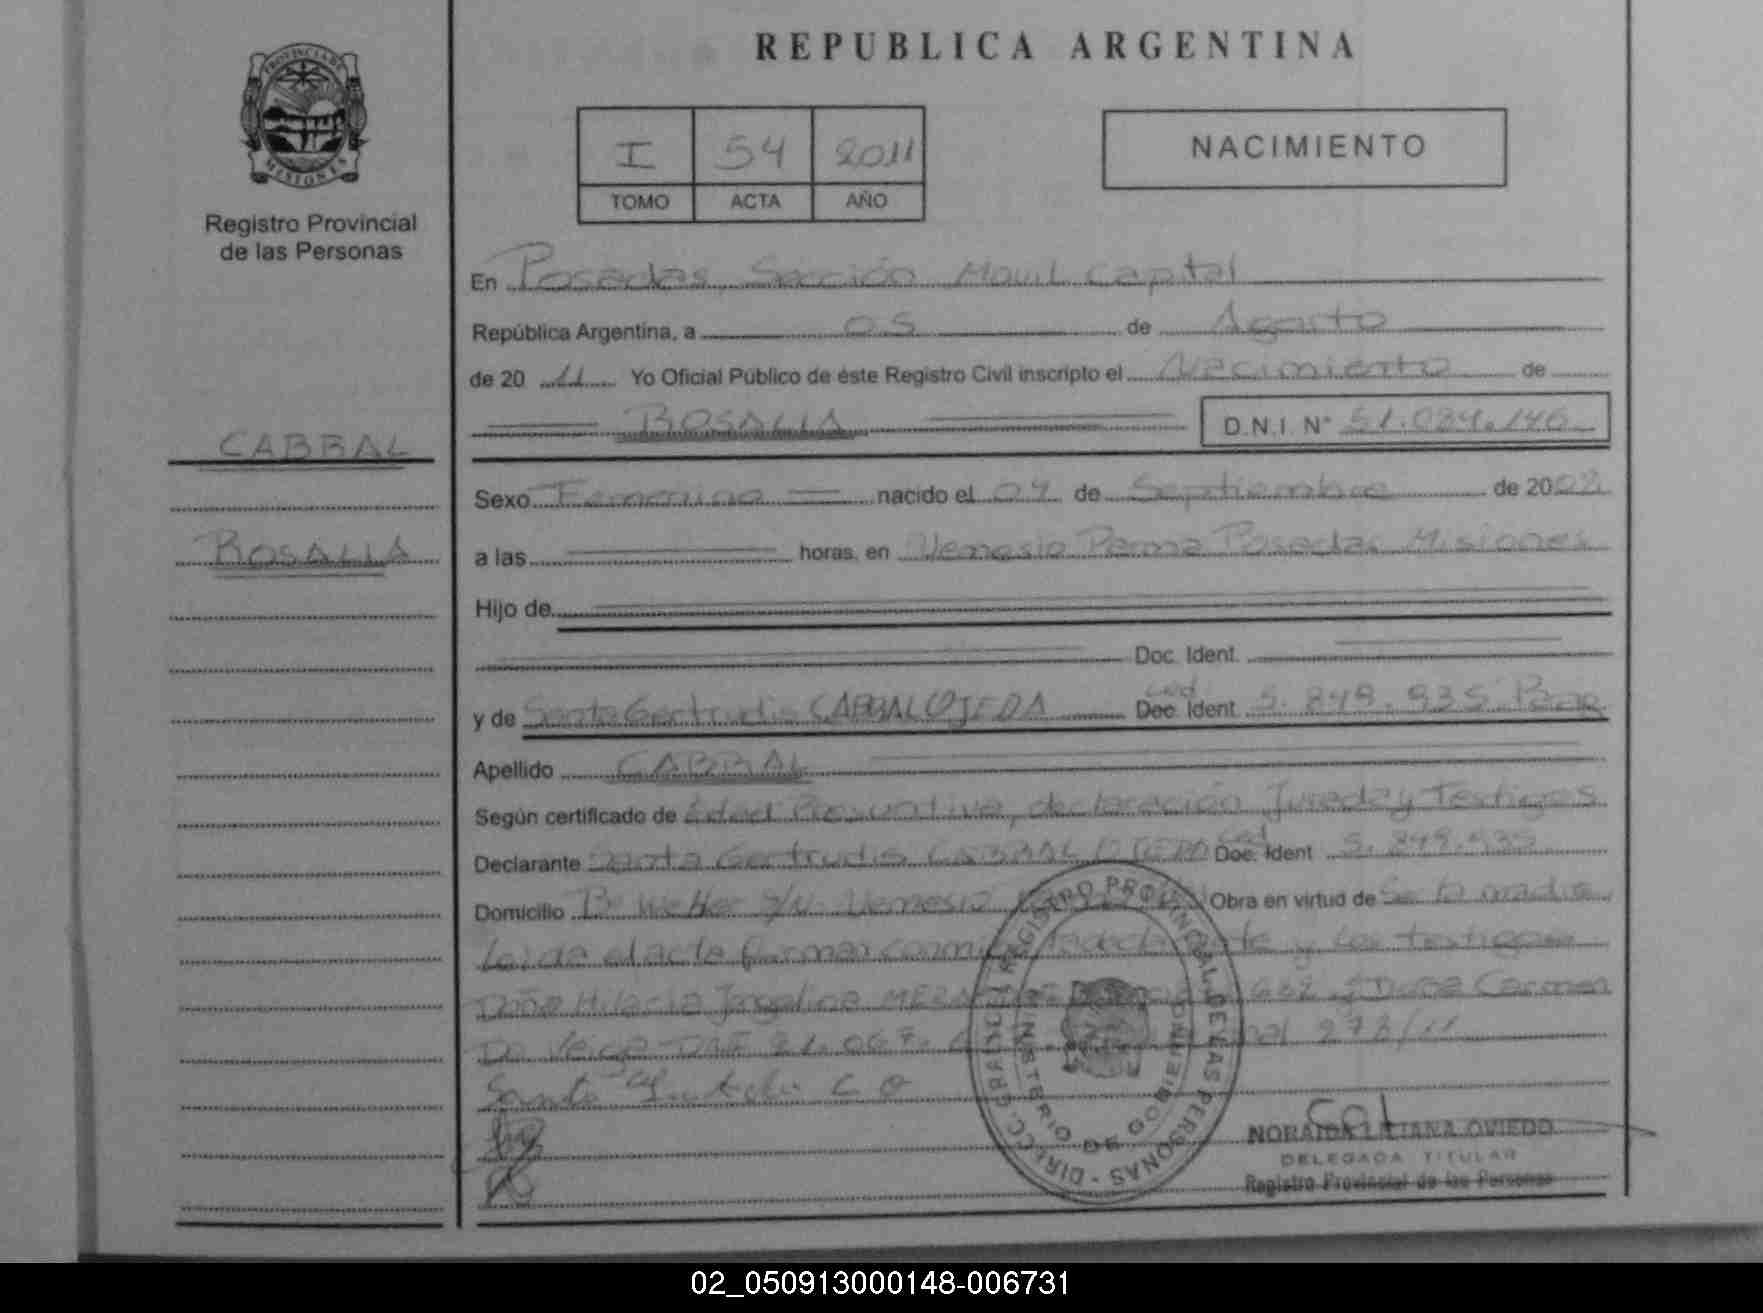 REPUBLICA ARGENTINA
PROVINCIA DE
MISIONES
Registro Provincial
de las Personas
I 54 2011
TOMO ACTA AÑO
NACIMIENTO
En Posadas, Sección Movil Capital
República Argentina, a 05 de Agosto
de 20 11 Yo Oficial Público de éste Registro Civil inscripto el Nacimiento de
ROSALIA D.N.I. Nº 51.084.146
CABRAL
ROSALIA
Sexo Femenino nacido el 04 de Septiembre de 2008
a las horas, en Nemesio Parma Posadas Misiones
Hijo de
Doc. Ident.
y de Santa Gertrudis CABRAL OJEDA Ced Doc. Ident. 5.849.935 Par
Apellido CABRAL
Según certificado de Edad Presuntiva, declaración Jurada y Testigos
Declarante Santa Gertrudis CABRAL OJEDA Ced Doc. Ident 5.849.935
Domicilio s/n Nemesio Obra en virtud de Ser la madre
Leida el acta firman conmigo la declarante y los testigos
Doña Hilaria y Doña Carmen
Da Veiga DNI 21.067. 273/11
Santa C O
DIRECC. GRAL. DEL REGISTRO PROVINCIAL DE LAS PERSONAS
MINISTERIO DE GOBIERNO
NORAIDA LILIANA OVIEDO
DELEGADA TITULAR
Registro Provincial de las Personas
02_050913000148-006731